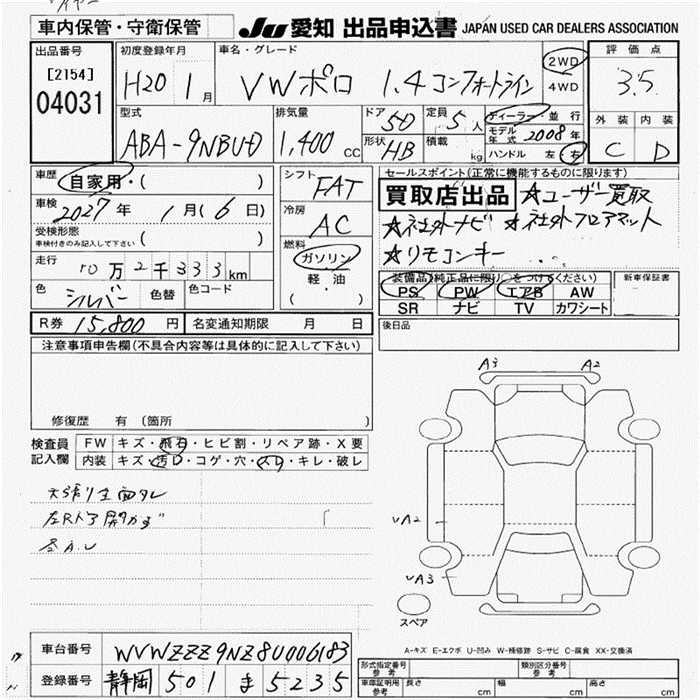 車内保管・守衛保管
JU愛知 出品申込書 JAPAN USED CAR DEALERS ASSOCIATION
出品番号 初度登録年月 車名・グレード 2WD 評価点
[2154] H20 1月 VWポロ 1.4コンフォートライン 4WD 3.5
04031
型式 排気量 ドア 5D 定員 5人 ディーラー・並行 外装 内装
ABA-9NBUD 1,400cc 形状 HB 積載 kg モデル年式 2008年 C D
ハンドル 左 右
車歴 自家用・( ) シフト FAT セールスポイント(正常に機能するものに限ります)
車検 2027年 1月(6日) 冷房 AC 買取店出品 ★ユーザー買取
受検形態 ( ) ★社外ナビ ★社外フロアマット
車検付きのみ記入して下さい 燃料 ガソリン ★リモコンキー
走行 10万2千333km 軽油
装備品(純正品に限り○をつけてください) 新車保証書
色 シルバー 色替 色コード ( ) PS PW エアB AW
SR ナビ TV カワシート
R券 15,800円 名変通知期限 月 日 後日品
注意事項申告欄(不具合内容等は具体的に記入して下さい)
修復歴 有(箇所 )
A3 A2
検査員 FW キズ・飛石・ヒビ割・リペア跡・X要
記入欄 内装 キズ・汚レ・コゲ・穴・スレ・キレ・破レ
天張り全面タレ
左Rドア開かず
VA2
VA3
スペア
A-キズ E-エクボ U-凹み W-補修跡 S-サビ C-腐食 XX-交換済
車台番号 WVWZZZ9NZ8U006183
登録番号 静岡 501 ま 5235
形式指定番号 参考 類別区分番号 参考
車庫証明用 参考 長さ cm 幅 cm 高さ cm